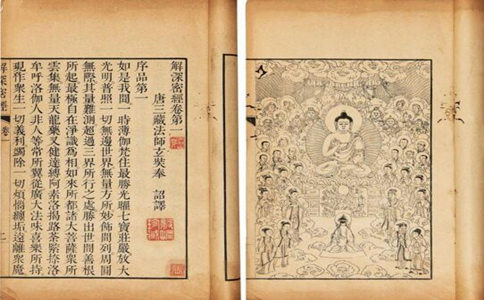 解深密經卷第一
唐三藏法師玄奘奉 詔譯
序品第一
如是我聞一時薄伽梵住最勝光曜七寶莊嚴放大
光明普照一切無邊世界無量方所妙飾間列周圓
無際其量難測超過三界所行之處勝出世間善根
所起最極自在淨識為相如來所都諸大菩薩眾所
雲集無量天龍藥叉健達縛阿素洛揭路荼緊捺洛
牟呼洛伽人非人等常所翼從廣大法味喜樂所持
現作眾生一切義利蠲除一切煩惱纏垢遠離眾魔
解深密經 卷一